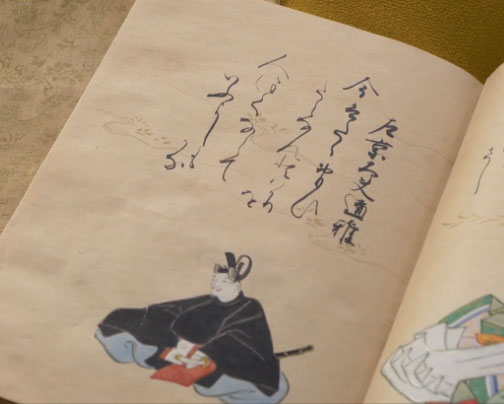 左京大夫道雅
今はたゝおもひ
たえなんとはかりを
人つてならて
いふよしも
かな